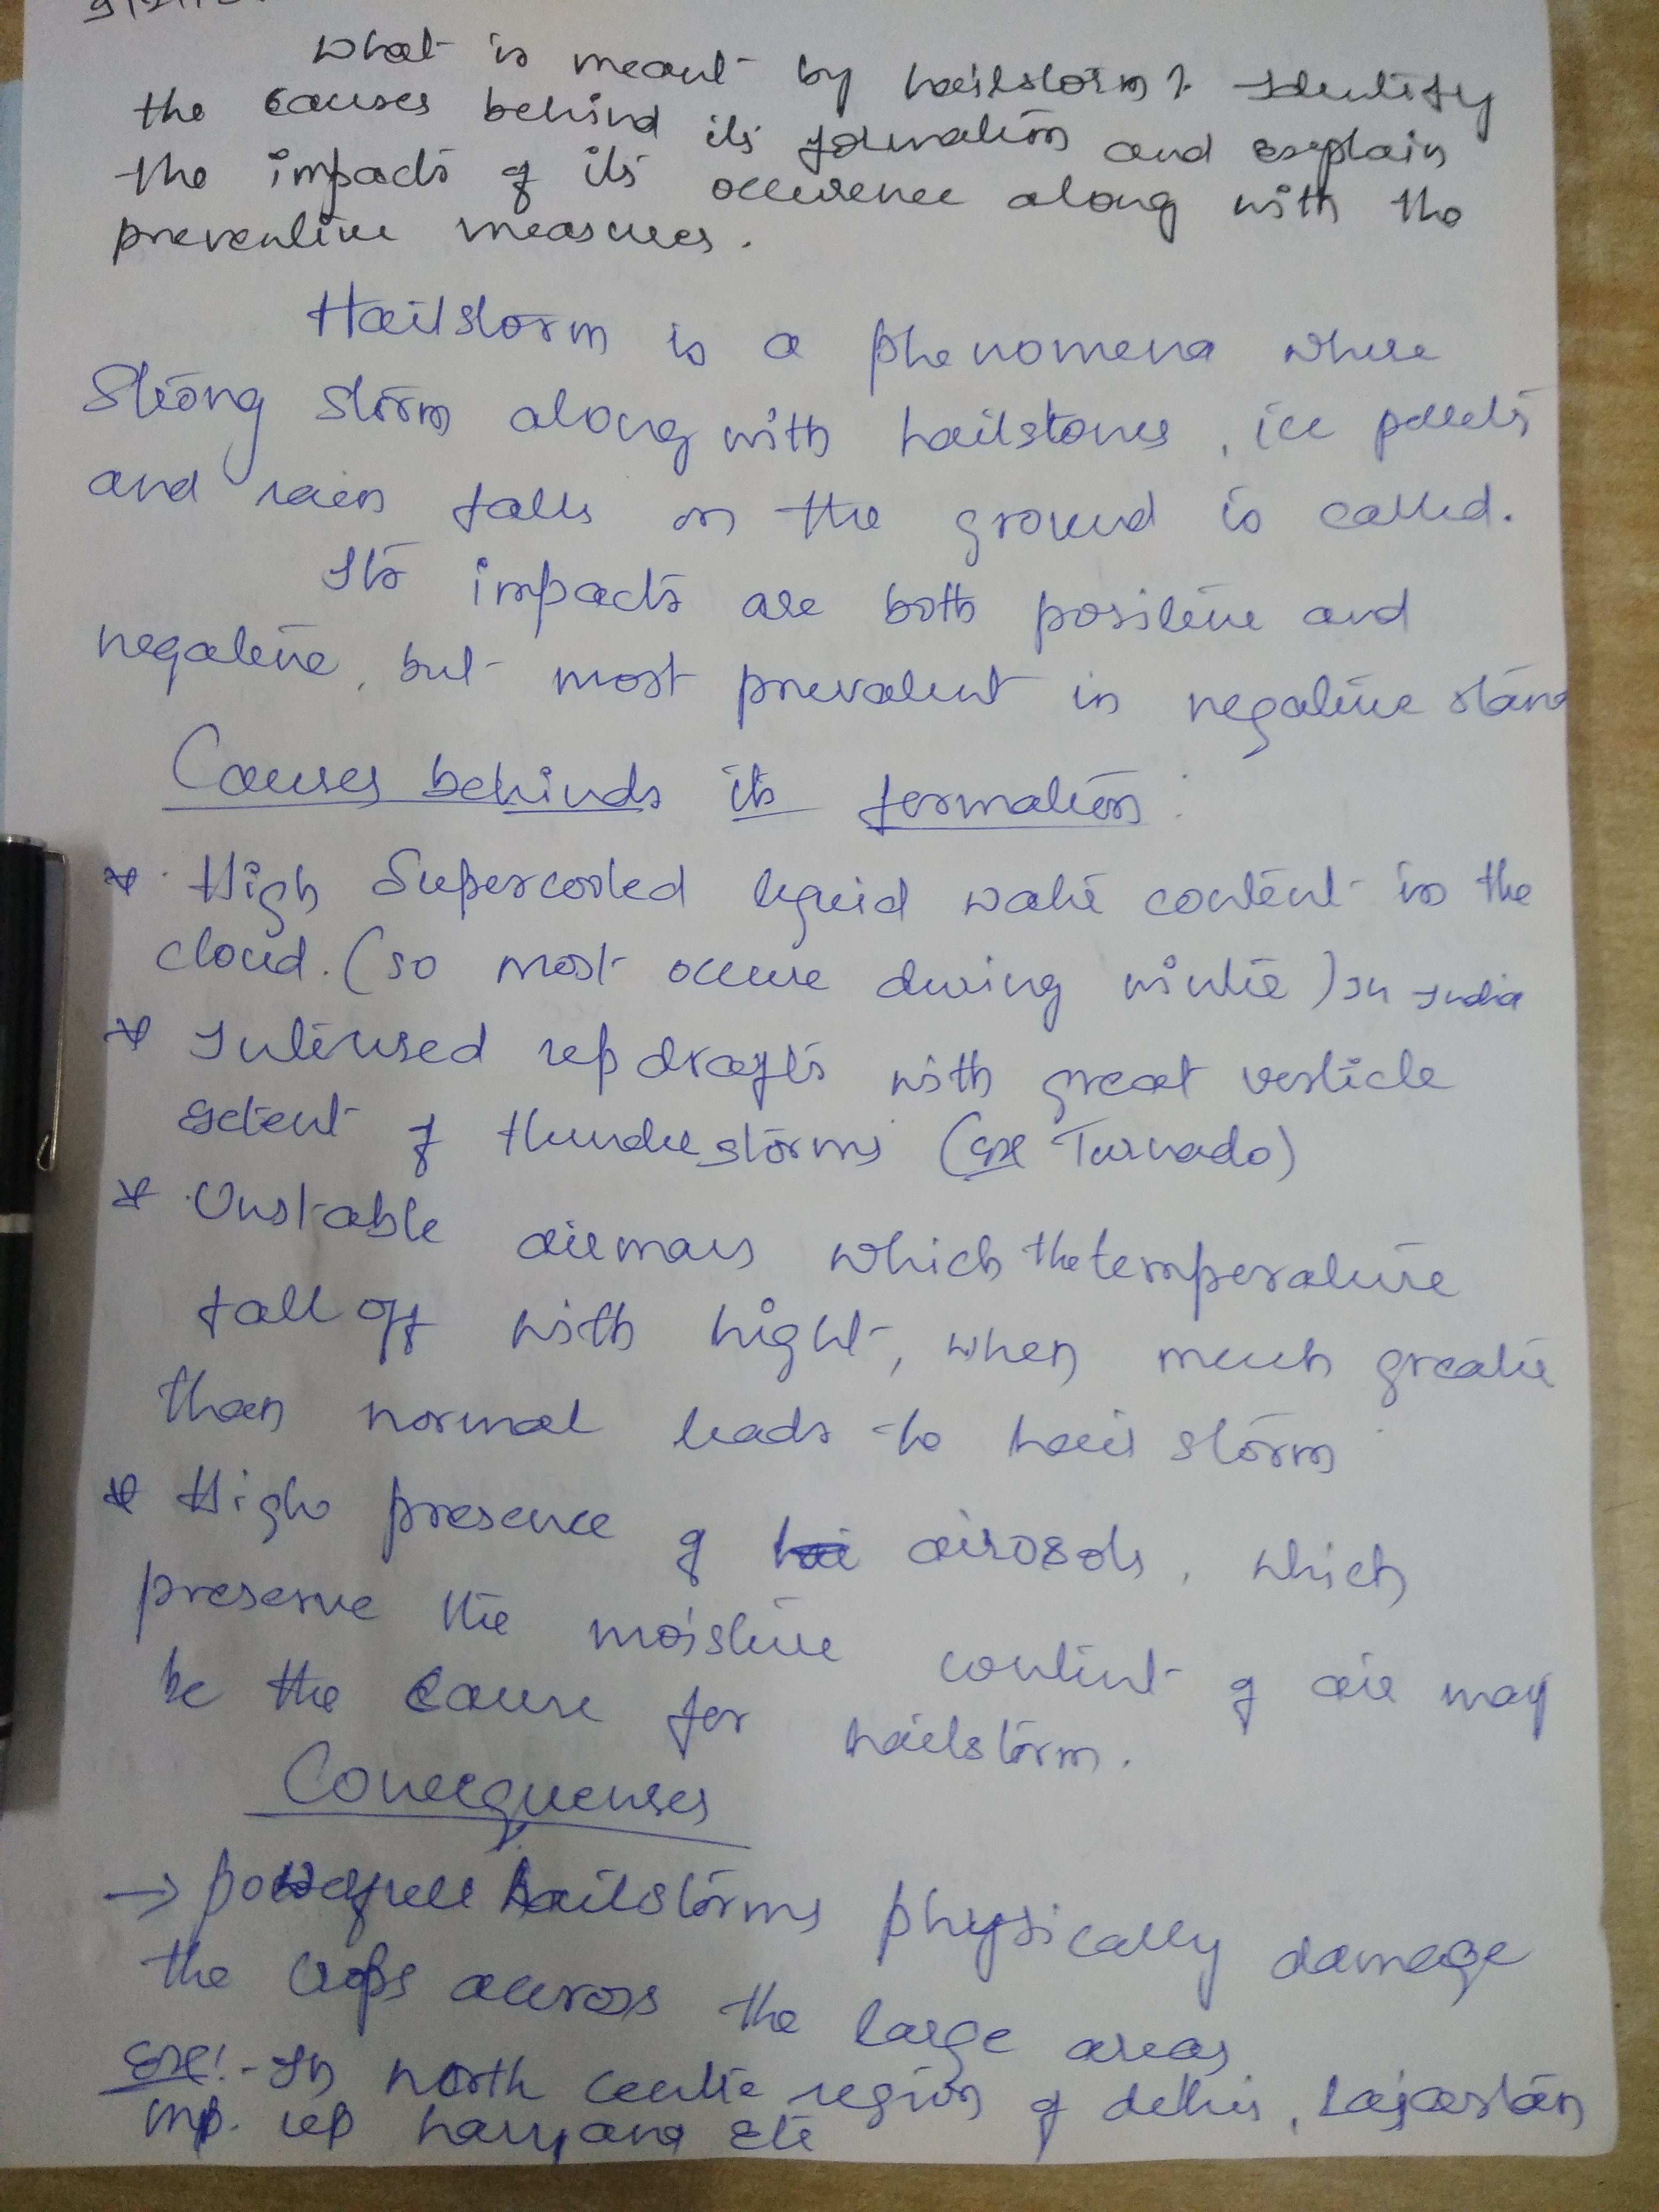 What is meant by hailstorm? Identify
the causes behind its formation and explain
the impacts of its occurence along with the
preventive measures.
Hailstorm is a phenomena where
Strong storm along with hailstones, ice pellets
and rain falls on the ground is called.
Its impacts are both positive and
negative, but most prevalent in negative
Causes behinds its formation:
* High Supercooled liquid water content in the
cloud. (so most occure during winter) In India
* Intensed updrafts with great verticle
extent of thunderstorms (ex Turnado)
* Unstable airmass which the temperature
fall off with hight, when much greater
than normal leads to hail storm
* High presence of airosols, which
preserve the moisture content of air may
be the cause for hailstorm.
Consequenses
→ powerfull hailstorms physically damage
the crops accross the large areas
Ex:- In north centre region of delhi, Rajastan
mp. up haryana etc